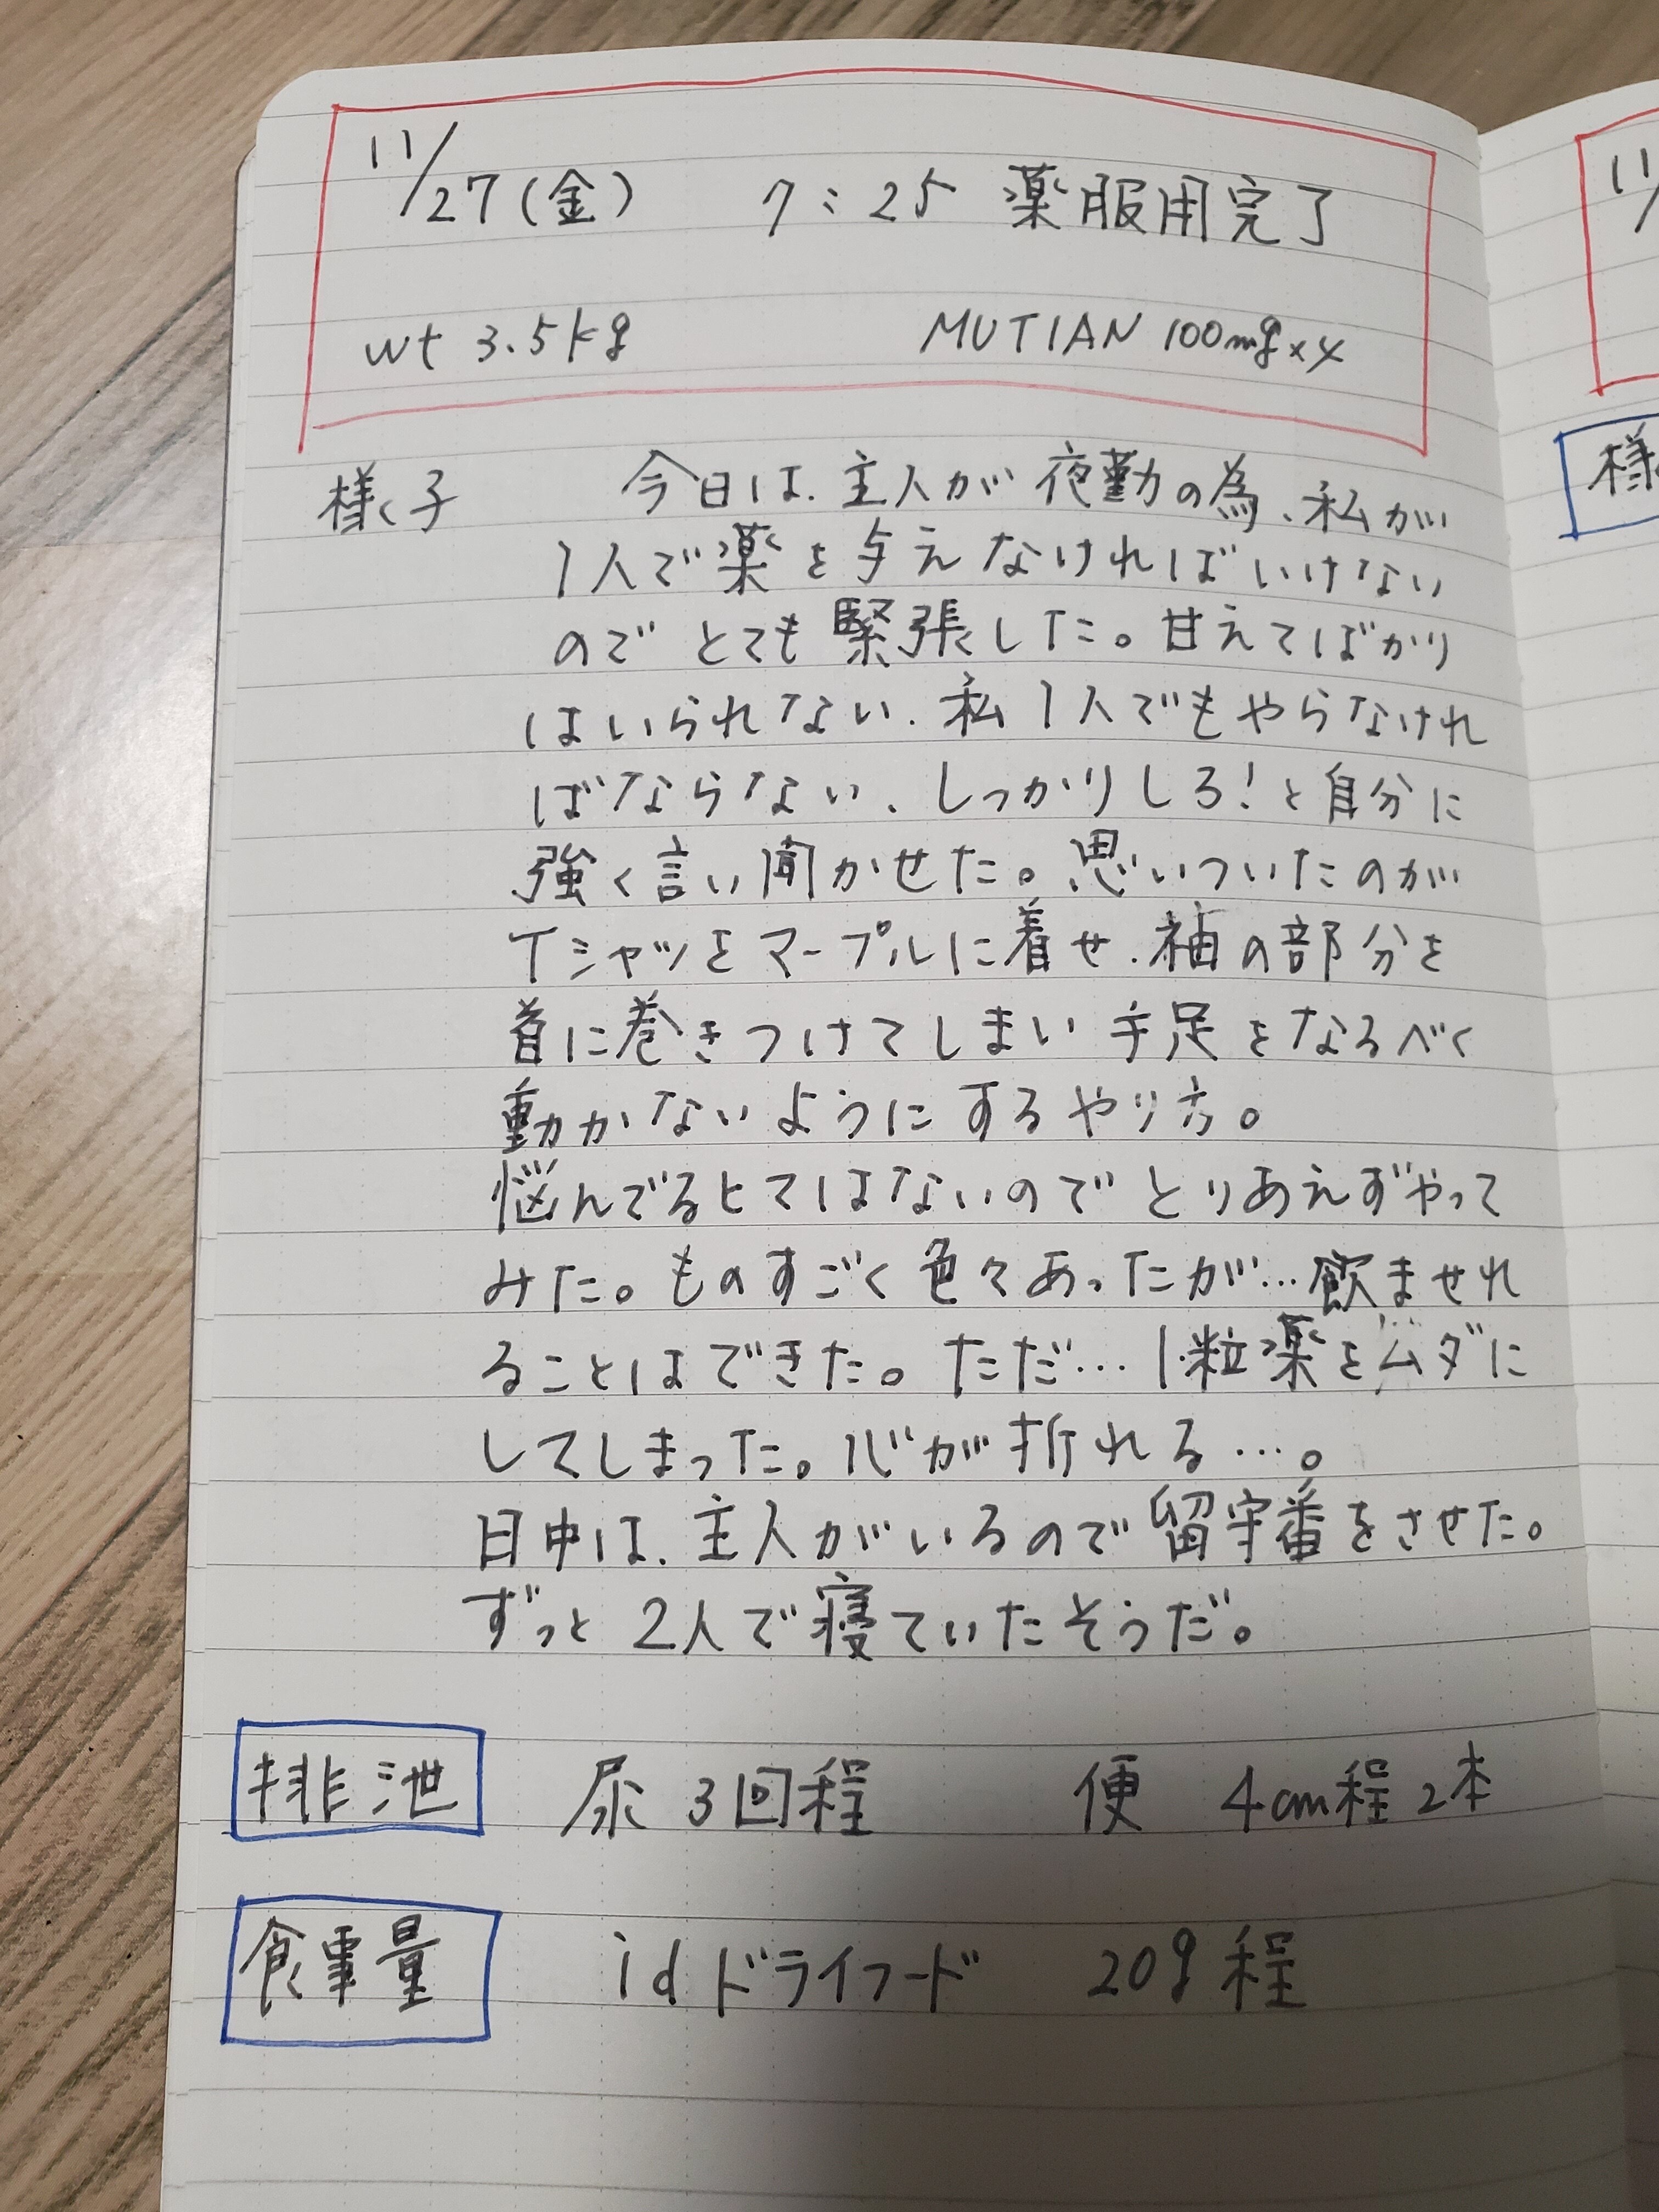 11/27(金) 7:25 薬服用完了
wt 3.5kg MUTIAN 100mg×4
様子 今日は、主人が夜勤の為、私が
1人で薬を与えなければいけない
のでとても緊張した。甘えてばかり
はいられない、私1人でもやらなけれ
ばならない、しっかりしろ!と自分に
強く言い聞かせた。思いついたのが
Tシャツをマープルに着せ、袖の部分を
首に巻きつけてしまい手足をなるべく
動かないようにするやり方。
悩んでるヒマはないのでとりあえずやって
みた。ものすごく色々あったが…飲ませれ
ることはできた。ただ…1粒薬をムダに
してしまった。心が折れる…。
日中は、主人がいるので留守番をさせた。
ずっと2人で寝ていたそうだ。
排泄 尿 3回程 便 4cm程2本
食事量 id ドライフード 20g程
11/
様